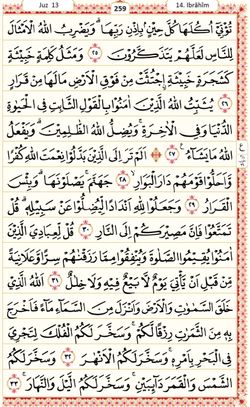 Juz 13
259
14. Ibrâhîm
تُؤْتِيْٓ اُكُلَهَا كُلَّ حِيْنٍۢ بِاِذْنِ رَبِّهَاۗ وَيَضْرِبُ اللّٰهُ الْاَمْثَالَ
لِلنَّاسِ لَعَلَّهُمْ يَتَذَكَّرُوْنَ ٢٥ وَمَثَلُ كَلِمَةٍ خَبِيْثَةٍ
كَشَجَرَةٍ خَبِيْثَةِۨ اجْتُثَّتْ مِنْ فَوْقِ الْاَرْضِ مَا لَهَا مِنْ قَرَارٍ
٢٦ يُثَبِّتُ اللّٰهُ الَّذِيْنَ اٰمَنُوْا بِالْقَوْلِ الثَّابِتِ فِى الْحَيٰوةِ
الدُّنْيَا وَفِى الْاٰخِرَةِۚ وَيُضِلُّ اللّٰهُ الظّٰلِمِيْنَۗ وَيَفْعَلُ
اللّٰهُ مَا يَشَاۤءُ ٢٧ اَلَمْ تَرَ اِلَى الَّذِيْنَ بَدَّلُوْا نِعْمَتَ اللّٰهِ كُفْرًا
وَّاَحَلُّوْا قَوْمَهُمْ دَارَ الْبَوَارِۙ ٢٨ جَهَنَّمَ يَصْلَوْنَهَاۗ وَبِئْسَ
الْقَرَارُ ٢٩ وَجَعَلُوْا لِلّٰهِ اَنْدَادًا لِّيُضِلُّوْا عَنْ سَبِيْلِهٖۗ قُلْ
تَمَتَّعُوْا فَاِنَّ مَصِيْرَكُمْ اِلَى النَّارِ ٣٠ قُلْ لِّعِبَادِيَ الَّذِيْنَ
اٰمَنُوْا يُقِيْمُوا الصَّلٰوةَ وَيُنْفِقُوْا مِمَّا رَزَقْنٰهُمْ سِرًّا وَّعَلَانِيَةً
مِّنْ قَبْلِ اَنْ يَّأْتِيَ يَوْمٌ لَّا بَيْعٌ فِيْهِ وَلَا خِلٰلٌ ٣١ اَللّٰهُ الَّذِيْ
خَلَقَ السَّمٰوٰتِ وَالْاَرْضَ وَاَنْزَلَ مِنَ السَّمَاۤءِ مَاۤءً فَاَخْرَجَ
بِهٖ مِنَ الثَّمَرٰتِ رِزْقًا لَّكُمْۚ وَسَخَّرَ لَكُمُ الْفُلْكَ لِتَجْرِيَ
فِى الْبَحْرِ بِاَمْرِهٖۚ وَسَخَّرَ لَكُمُ الْاَنْهٰرَ ٣٢ وَسَخَّرَ لَكُمُ
الشَّمْسَ وَالْقَمَرَ دَاۤىِٕبَيْنِۚ وَسَخَّرَ لَكُمُ الَّيْلَ وَالنَّهَارَ ٣٣